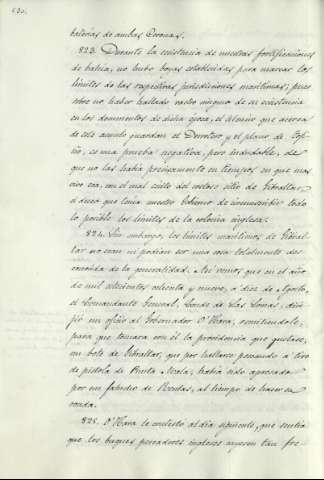 530.
baterías de ambas Coronas.
823. Durante la existencia de nuestras fortificaciones
de bahía, no hubo boyas establecidas para marcar los
límites de las respectivas jurisdicciones marítimas; pues
sobre no haber hallado rastro ninguno de su existencia
en los documentos de dicha época, el silencio que acerca
de este asunto guardan el Derrotero y el plano de Tofi-
ño, es una prueba negativa, pero indudable, de
que no las había precisamente en tiempos en que mas
vivo era, con el mal éxito del costoso sitio de Gibraltar,
el deseo que tenía nuestro Gobierno de circunscribir todo
lo posible los límites de la colonia inglesa.
824. Sin embargo, los límites marítimos de Gibral-
tar no eran ni podían ser una cosa totalmente des-
conocida de la generalidad. Así vemos que en el año
de mil setecientos ochenta y nueve, a diez de Agosto,
el Comandante General, Conde de Las Lomas, diri-
jió un oficio al Gobernador O'Hara, remitiendole,
para que tomara con él la providencia que gustase,
un bote de Gibraltar, que por hallarse pescando a tiro
de pistola de Punta Mala, había sido apresado
por un falucho de Rentas, al tiempo de hacer su
ronda.
825. O'Hara le contestó al día siguiente, que sentía
que los buques pescadores ingleses cayesen tan fre-